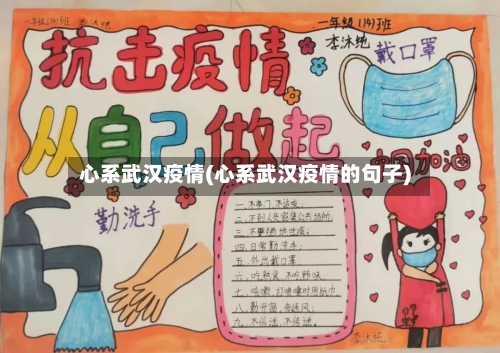 一年级(14)班 李沐纯
一年级(14)班
李沐纯
戴口罩
抗击疫情
从自己做起
心系武汉疫情(心系武汉疫情的句子)
中国加油
勤洗手
一.不串门,不访友;
二.不到人员密集公共场所;
三.不要随地吐痰;
四.日常勤洗手;
五.外出戴口罩
六.吃熟食,不吃野味;
七.咳嗽、打喷嚏时用纸巾;
八.勤开窗,勤通风;
九.不信谣、不传谣。
李沐纯